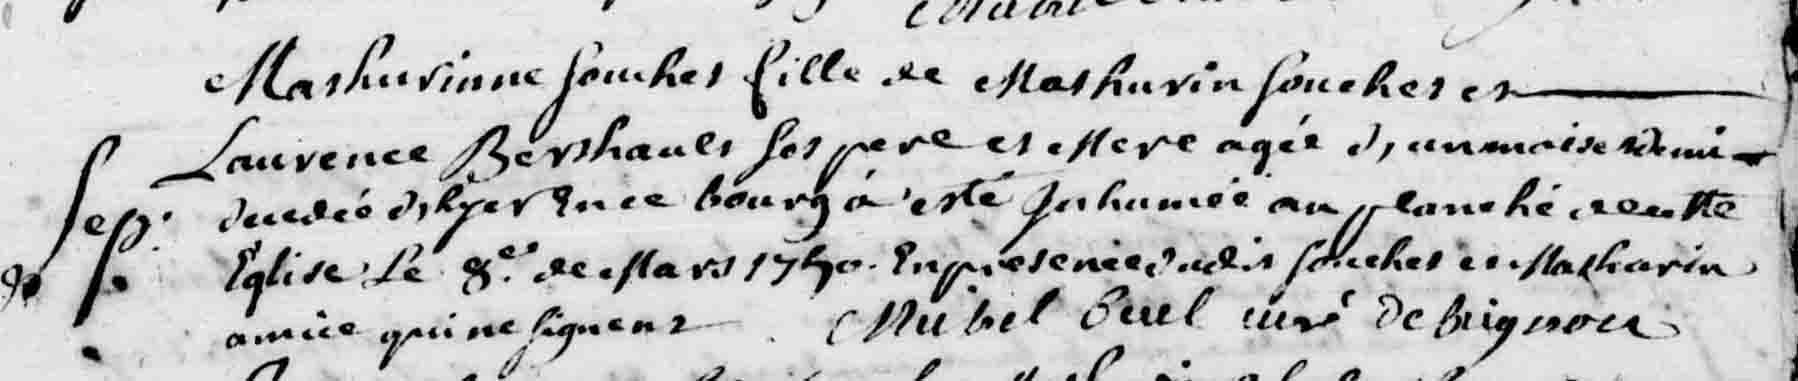 Mathurinne Souchet fille de Mathurin Souchet et
Laurence Berthault ses pere et Mere agée d'un mois et demi
Sep. decedée d'hyer En ce bourg à esté Inhumée au planché de cette
Eglise Le 8e. de Mars 1750. En presence dudit Souchet et Mathurin
amice qui ne signent Michel Buel curé de brignou